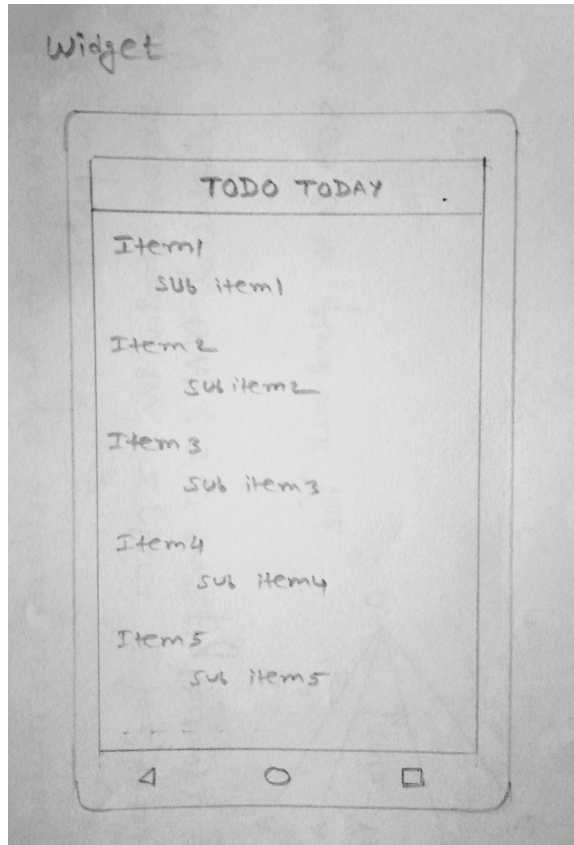 Widget
TODO TODAY
Item1
sub item1
Item2
sub item2
Item3
sub item3
Item4
sub item4
Item5
sub item5
- - - - -